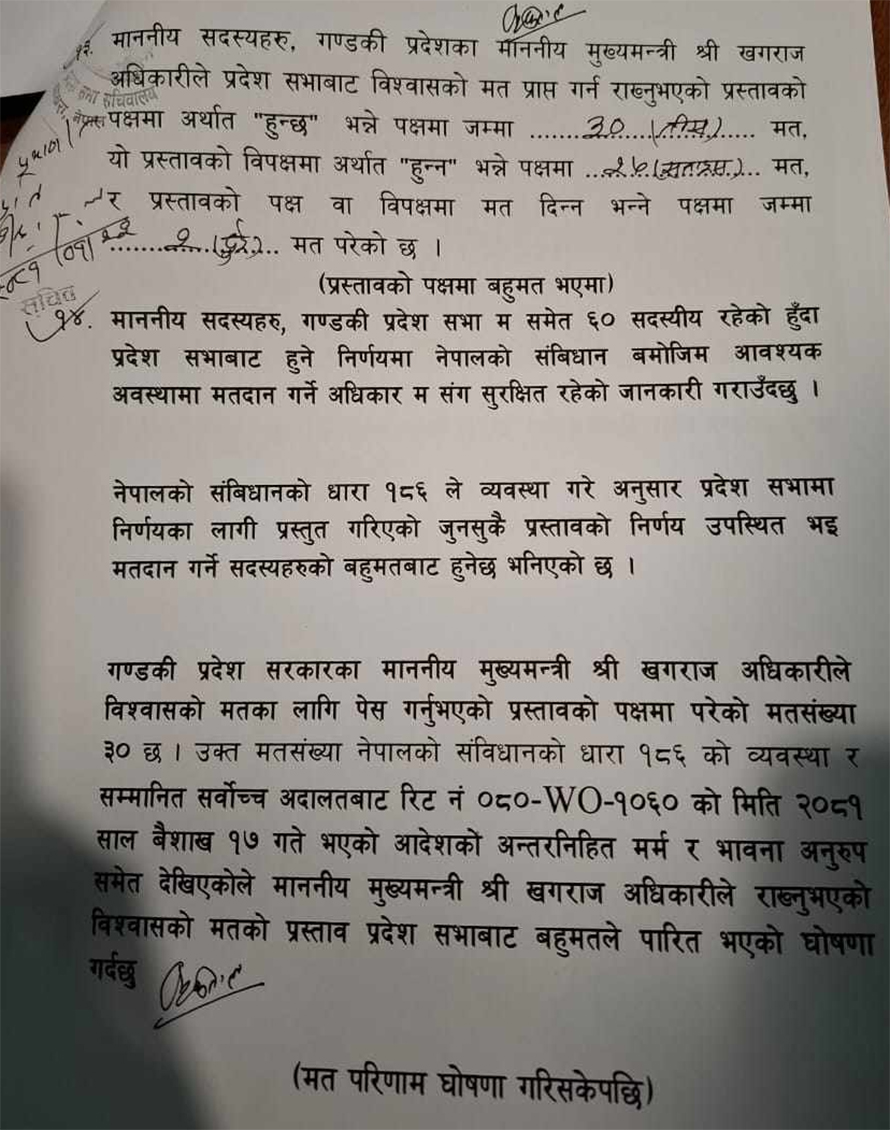 १३. माननीय सदस्यहरु, गण्डकी प्रदेशका माननीय मुख्यमन्त्री श्री खगराज
अधिकारीले प्रदेश सभाबाट विश्वासको मत प्राप्त गर्न राख्नुभएको प्रस्तावको
पक्षमा अर्थात "हुन्छ" भन्ने पक्षमा जम्मा .......३०.(तीस)..... मत,
यो प्रस्तावको विपक्षमा अर्थात "हुन्न" भन्ने पक्षमा ...... मत,
र प्रस्तावको पक्ष वा विपक्षमा मत दिन्न भन्ने पक्षमा जम्मा
.........२.(दुई)... मत परेको छ ।
(प्रस्तावको पक्षमा बहुमत भएमा)
सचिव
१४. माननीय सदस्यहरु, गण्डकी प्रदेश सभा म समेत ६० सदस्यीय रहेको हुँदा
प्रदेश सभाबाट हुने निर्णयमा नेपालको संबिधान बमोजिम आवश्यक
अवस्थामा मतदान गर्ने अधिकार म संग सुरक्षित रहेको जानकारी गराउँदछु ।
नेपालको संबिधानको धारा १८६ ले व्यवस्था गरे अनुसार प्रदेश सभामा
निर्णयका लागी प्रस्तुत गरिएको जुनसुकै प्रस्तावको निर्णय उपस्थित भइ
मतदान गर्ने सदस्यहरुको बहुमतबाट हुनेछ भनिएको छ ।
गण्डकी प्रदेश सरकारका माननीय मुख्यमन्त्री श्री खगराज अधिकारीले
विश्वासको मतका लागि पेस गर्नुभएको प्रस्तावको पक्षमा परेको मतसंख्या
३० छ । उक्त मतसंख्या नेपालको संविधानको धारा १८६ को व्यवस्था र
सम्मानित सर्वोच्च अदालतबाट रिट नं ०८०-WO-१०६० को मिति २०८१
साल बैशाख १७ गते भएको आदेशको अन्तरनिहित मर्म र भावना अनुरुप
समेत देखिएकोले माननीय मुख्यमन्त्री श्री खगराज अधिकारीले राख्नुभएको
विश्वासको मतको प्रस्ताव प्रदेश सभाबाट बहुमतले पारित भएको घोषणा
गर्दछु
(मत परिणाम घोषणा गरिसकेपछि)